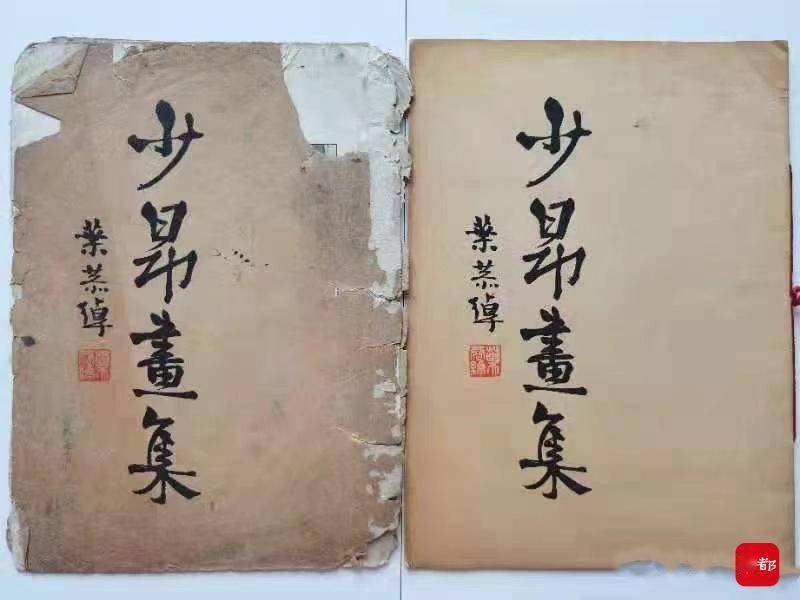 少昂畫集
葉恭綽
少昂畫集
葉恭綽
都